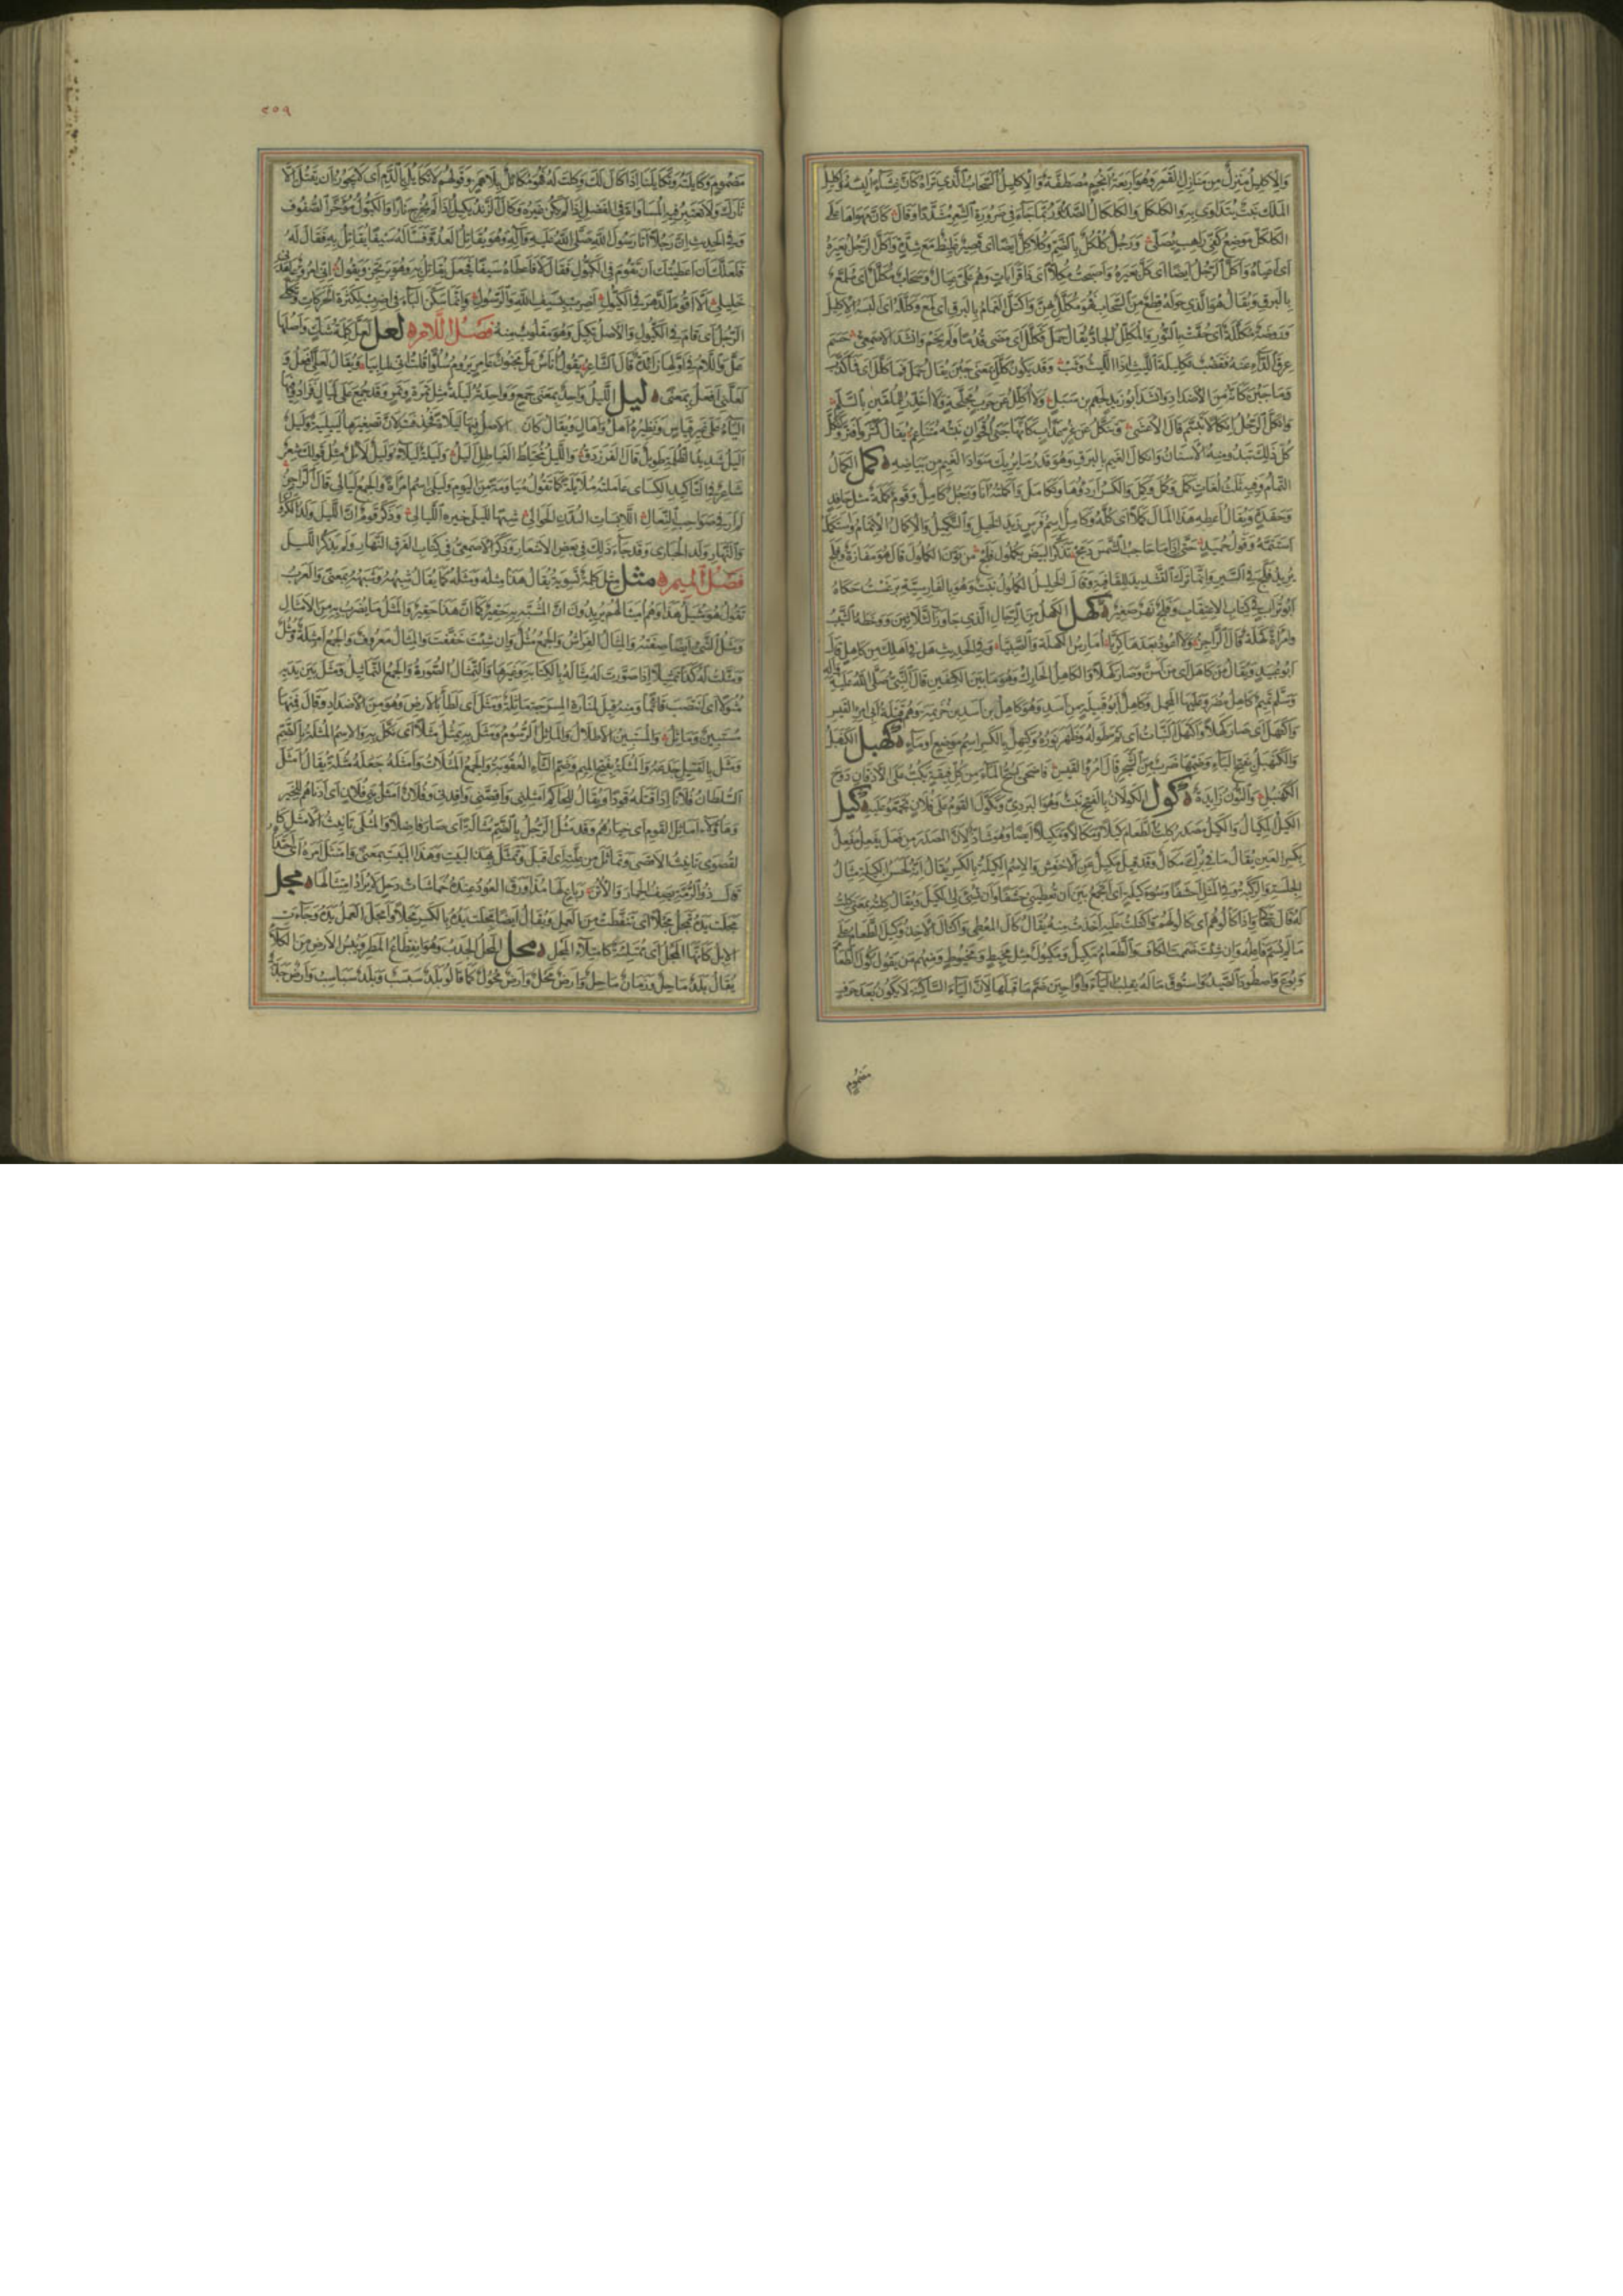 والإكليل منزل من منازل القمر وهو أربعة أنجم مصطفة والإكليل السحاب الذي تراه كأن غشاء ألبسه وإكليل
الملك نبت يتداوى به والكلكل والكلكال الصدر وربما جاء في ضرورة الشعر مشددا وقال كأن مهواها على
الكلكل موضع كفي راهب يصلي ورجل كلكل بالضم وكلاكل أيضا أي قصير غليظ مع شدة وأكل الرجل بعيره
أي أعياه وأكل الرجل أيضا أي كل بعيره وأصبحت مكلا أي ذا قرابات وهم علي عيال وسحاب مكلل أي ملمع
بالبرق ويقال هو الذي حوله قطع من السحاب فهو مكلل بهن واكتل الغمام بالبرق أي لمع وكلله أي ألبسه الإكليل
وروضة مكللة أي حفت بالنور والمكلل الجاد يقال حمل فكلل أي مضى قدما ولم يخم وأنشد الأصمعي حسم
عرق الداء عنه فقضب تكليلة الليث إذا الليث وثب وقد يكون كلل بمعنى جبن يقال حمل فما كلل أي فما كذب
وما جبن كأنه من الأضداد وأنشد أبو زيد لجهم بن سبل ولا أكلل عن حرب مجلحة ولا أخدر للملقين بالسلم
وانكل الرجل انكلالا تبسم قال الأعشى وتنكل عن غر عذاب كأنها جنى أقحوان نبته متناعم يقال كشر وافتر وانكل
كل ذلك تبدو منه الأسنان وانكلال الغيم بالبرق وهو قدر ما يريك سواد الغيم من بياضه كمل الكمال
التمام وفيه ثلث لغات كمل وكمل وكمل والكسر أردؤها وتكامل وأكملته أنا ورجل كامل وقوم كملة مثل حافد
وحفدة ويقال أعطه هذا المال كملا أي كله وكامل اسم فرس زيد الخيل والتكميل والإكمال الإتمام واستكمله
استتمه وقول حميد حتى إذا ما حاجب الشمس دمج تذكر البيض بكملول فلج من نون الكملول قال هو مفازة وفلج
يريد فلج في السير وإنما ترك التشديد للقافية وقال الخليل الكملول نبت وهو بالفارسية برغست حكاه
أبو تراب في كتاب الاعتقاب وفلج نهر صغير كهل الكهل من الرجال الذي جاوز الثلاثين ووخطه الشيب
وامرأة كهلة قال الراجز ولا أعود بعدها كريا أمارس الكهلة والصبيا وفي الحديث هل في أهلك من كاهل قال
أبو عبيد ويقال من كاهل أي من أسن وصار كهلا والكاهل الحارك وهو ما بين الكتفين قال النبي صلى الله عليه وآله
وسلم تميم كاهل مضر وعليها المحمل وكاهل أبو قبيلة من أسد وهو كاهل بن أسد بن خزيمة وهم قتلة أبي امرئ القيس
واكتهل أي صار كهلا واكتهل النبات أي تم طوله وظهر نوره وكهيل بالكسر اسم موضع أو ماء كهبل الكهبل
والكنهبل بفتح الباء وضمها ضرب من الشجر قال امرؤ القيس فأضحى يسح الماء من كل فيقة يكب على الأذقان دوح
الكنهبل والنون زايدة كول الكولان بالفتح نبت وهو البردي وتكول القوم على فلان تجمعوا عليه كيل
الكيل المكيال والكيل مصدر كلت الطعام كيلا ومكالا ومكيلا أيضا وهو شاذ لأن المصدر من فعل يفعل مفعل
بكسر العين يقال ما في برك مكال وقد قيل مكيل عن الأخفش والاسم الكيلة بالكسر يقال إنه لحسن الكيلة مثال
الجلسة والركبة وفي المثل أحشفا وسوء كيلة أي أتجمع بين أن تعطيني حشفا وأن تسئ لي الكيل ويقال كلته بمعنى كلت
له قال تعالى وإذا كالوهم أي كالوا لهم واكتلت عليه أخذت منه يقال كال المعطي واكتال الآخذ وكيل الطعام على
ما لم يسم فاعله وإن شئت ضممت الكاف والطعام مكيل ومكيول مثل مخيط ومخيوط ومنهم من يقول كول الطعام
وبوع واصطود الصيد واستوق ماله بقلب الياء واوا حين ضم ما قبلها لأن الياء الساكنة لا يكون بعد حرف
مضموم
٢٥٩
مضموم وكايلته وتكايلنا إذا كال لك وكلت له فهو مكائل بلا همز وقولهم لا تكايل بالدم أي لا يجوز أن تقتل إلا
ثأرك ولا تعتبر فيه المساواة في الفضل إذا لم يكن غيره وكال الزند يكيل إذا لم يخرج نارا والكيول مؤخر الصفوف
وفي الحديث أن رجلا أتى رسول الله صلى الله عليه وآله وهو يقاتل العدو فسأله سيفا يقاتل به فقال له
فلعلك إن أعطيتك أن تقوم في الكيول فقال لا فأعطاه سيفا فجعل يقاتل به وهو يرتجز ويقول إني امرؤ عاهدني
خليلي ألا أقوم الدهر في الكيول أضرب بسيف الله والرسول وإنما سكن الباء في أضرب لكثرة الحركات وتكلى
الرجل أي قام في الكيول والأصل تكيل وهو مقلوب منه فصل اللام لعل لعل كلمة شك وأصلها
عل واللام في أولها زائدة قال الشاعر يقول أناس عل مجنون عامر يروم سلوا قلت إني لما بيا ويقال لعلي أفعل و
لعلني أفعل بمعنى ليل الليل واحد بمعنى جمع وواحدته ليلة مثل تمرة وتمر وقد جمع على ليال فزادوا فيها
الياء على غير قياس ونظيره أهل وأهال ويقال كان الأصل فيها ليلاة فحذفت لأن تصغيرها لييلية وليل
أليل شديد الظلمة طويل قال الفرزدق والليل مختلط الغياطل أليل وليلة ليلاء وليل لائل مثل قولك شعر
شاعر في التأكيد الكسائي عاملته ملايلة كما تقول مياومة من اليوم وليلى اسم امرأة والجمع ليالي قال الراجز
لم أر في صواحب النعال اللابسات البدن الحوالي شبها لليلى خيرة الليالي وذكر قوم أن الليل ولد الكروان
والنهار ولد الحبارى وقد جاء ذلك في بعض الأشعار وذكر الأصمعي في كتاب الفرق النهار ولم يذكر الليل
فصل الميم مثل مثل كلمة تسوية يقال هذا مثله ومثله كما يقال شبهه وشبهه بمعنى والعرب
تقول هو مثيل هذا وهم أميثالهم يريدون أن المشبه به حقير كما أن هذا حقير والمثل ما يضرب به من الأمثال
ومثل الشيء أيضا صفته والمثال الفراش والجمع مثل وإن شئت خففت والمثال معروف والجمع أمثلة ومثل
ومثلت له كذا تمثيلا إذا صورت له مثاله بالكتابة وغيرها والتمثال الصورة والجمع التماثيل ومثل بين يديه
مثولا أي انتصب قائما ومنه قيل لمنارة المسرجة ماثلة ومثل أي لطأ بالأرض وهو من الأضداد وقال فمنها
مستبين وماثل والمستبين الأطلال والماثل الرسوم ومثل به يمثل مثلا أي نكل به والاسم المثلة بالضم
ومثل بالقتيل جدعه والمثلة بفتح الميم وضم الثاء العقوبة والجمع المثلات وأمثله جعله مثلة يقال أمثل
السلطان فلانا إذا قتله قودا ويقال للحاكم أمثلني وأقصني وأقدني وفلان أمثل بني فلان أي أدناهم للخير
وهؤلاء أماثل القوم أي خيارهم وقد مثل الرجل بالضم مثالة أي صار فاضلا والمثلى تأنيث الأمثل كا
لقصوى تأنيث الأقصى وتماثل من علته أي أقبل وتمثل بهذا البيت وهذا البيت بمعنى وامتثل أمره أي احتذاه
قال ذو الرمة يصف الحمار والأتن رباع لها مذ أورق العود عنده خماشات ذحل لا يراد امتثالها مجل
مجلت يده تمجل مجلا أي تنفطت من العمل ويقال أيضا مجلت يده بالكسر مجلا وأمجل العمل يده وجاءت
الإبل كأنها المجل أي ممتلئة كامتلاء المجل محل المحل الجدب وهو انقطاع المطر ويبس الأرض من الكلأ
يقال بلد ماحل وزمان ماحل وأرض محل وأرض محول كما قالوا بلد سبسب وبلد سباسب وأرض جدبة